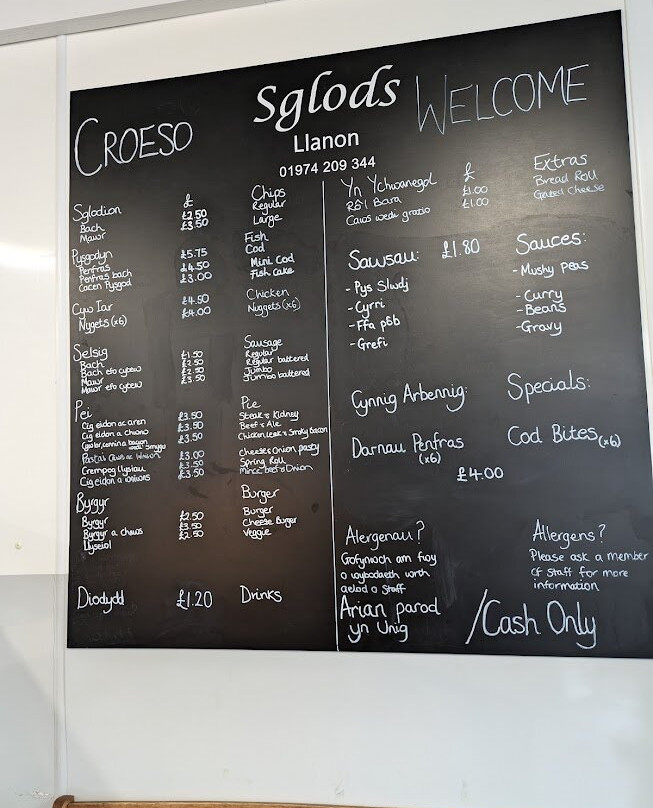 CROESO
Sglods
WELCOME
Llanon
01974 209 344
Sglodion £ Chips
Bach £2.50 Regular
Mawr £3.50 Large
Pysgodyn Fish
Penfras £5.75 Cod
Penfras bach £4.50 Mini Cod
Cacen Pysgod £3.00 Fish cake
Cyw Iar £4.50 Chicken
Nygets (x6) £4.00 Nuggets (x6)
Selsig Sausage
Bach £1.50 Regular
Bach efo cytew £2.50 Regular battered
Mawr £2.50 Jumbo
Mawr efo cytew £3.50 Jumbo battered
Pei Pie
Cig eidon ac aren £3.50 Steak & Kidney
Cig eidon a chwrw £3.50 Beef & Ale
cennin a bacon £3.50 Chicken, Leek & Smoky Bacon
Pastai £3.00 Cheese & Onion pasty
Crempog llysiau £3.50 Spring Roll
Cig eidion a winiwns £3.50 Mince beef & Onion
Byrgyr Burger
Byrgyr £2.50 Burger
Byrgyr a chaws £3.50 Cheese Burger
Llysieiol £2.50 Veggie
Diodydd £1.20 Drinks
Yn Ychwanegol £ Extras
Rôl Bara £1.00 Bread Roll
Caws wedi gratio £1.00 Grated Cheese
Sawsau: £1.80 Sauces:
- Pys Slwdj - Mushy Peas
- Cyrri - Curry
- Ffa pôb - Beans
- Grefi - Gravy
Cynnig Arbennig: Specials:
Darnau Penfras Cod Bites (x6)
(x6)
£4.00
Alergenau? Allergens?
Gofynwch am fwy Please ask a member
o wybodaeth wrth of staff for more
aelod o staff information
Arian parod /Cash Only
yn Unig